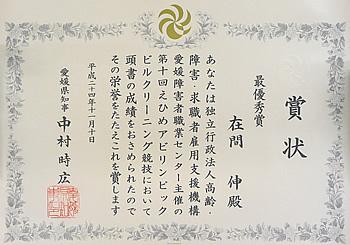 賞状
最優秀賞
在間 伸殿
あなたは独立行政法人高齢・
障害・求職者雇用支援機構
愛媛障害者職業センター主催の
第十回えひめアビリンピック
ビルクリーニング競技において
頭書の成績をおさめられたので
その栄誉をたたえこれを賞します
平成二十四年十一月十日
愛媛県知事
中村時広